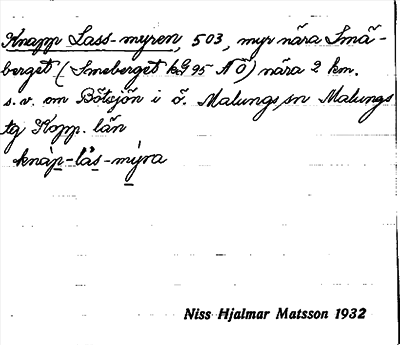 Knapp Lass-myren, 503, myr nära Små-
berget (Smeberget kG 95 NÖ) nära 2 km.
s.v. om Bötsjön i ö. Malungs sn Malungs
tg Kopp. län
knàp-lås-mýra
Niss Hjalmar Matsson 1932